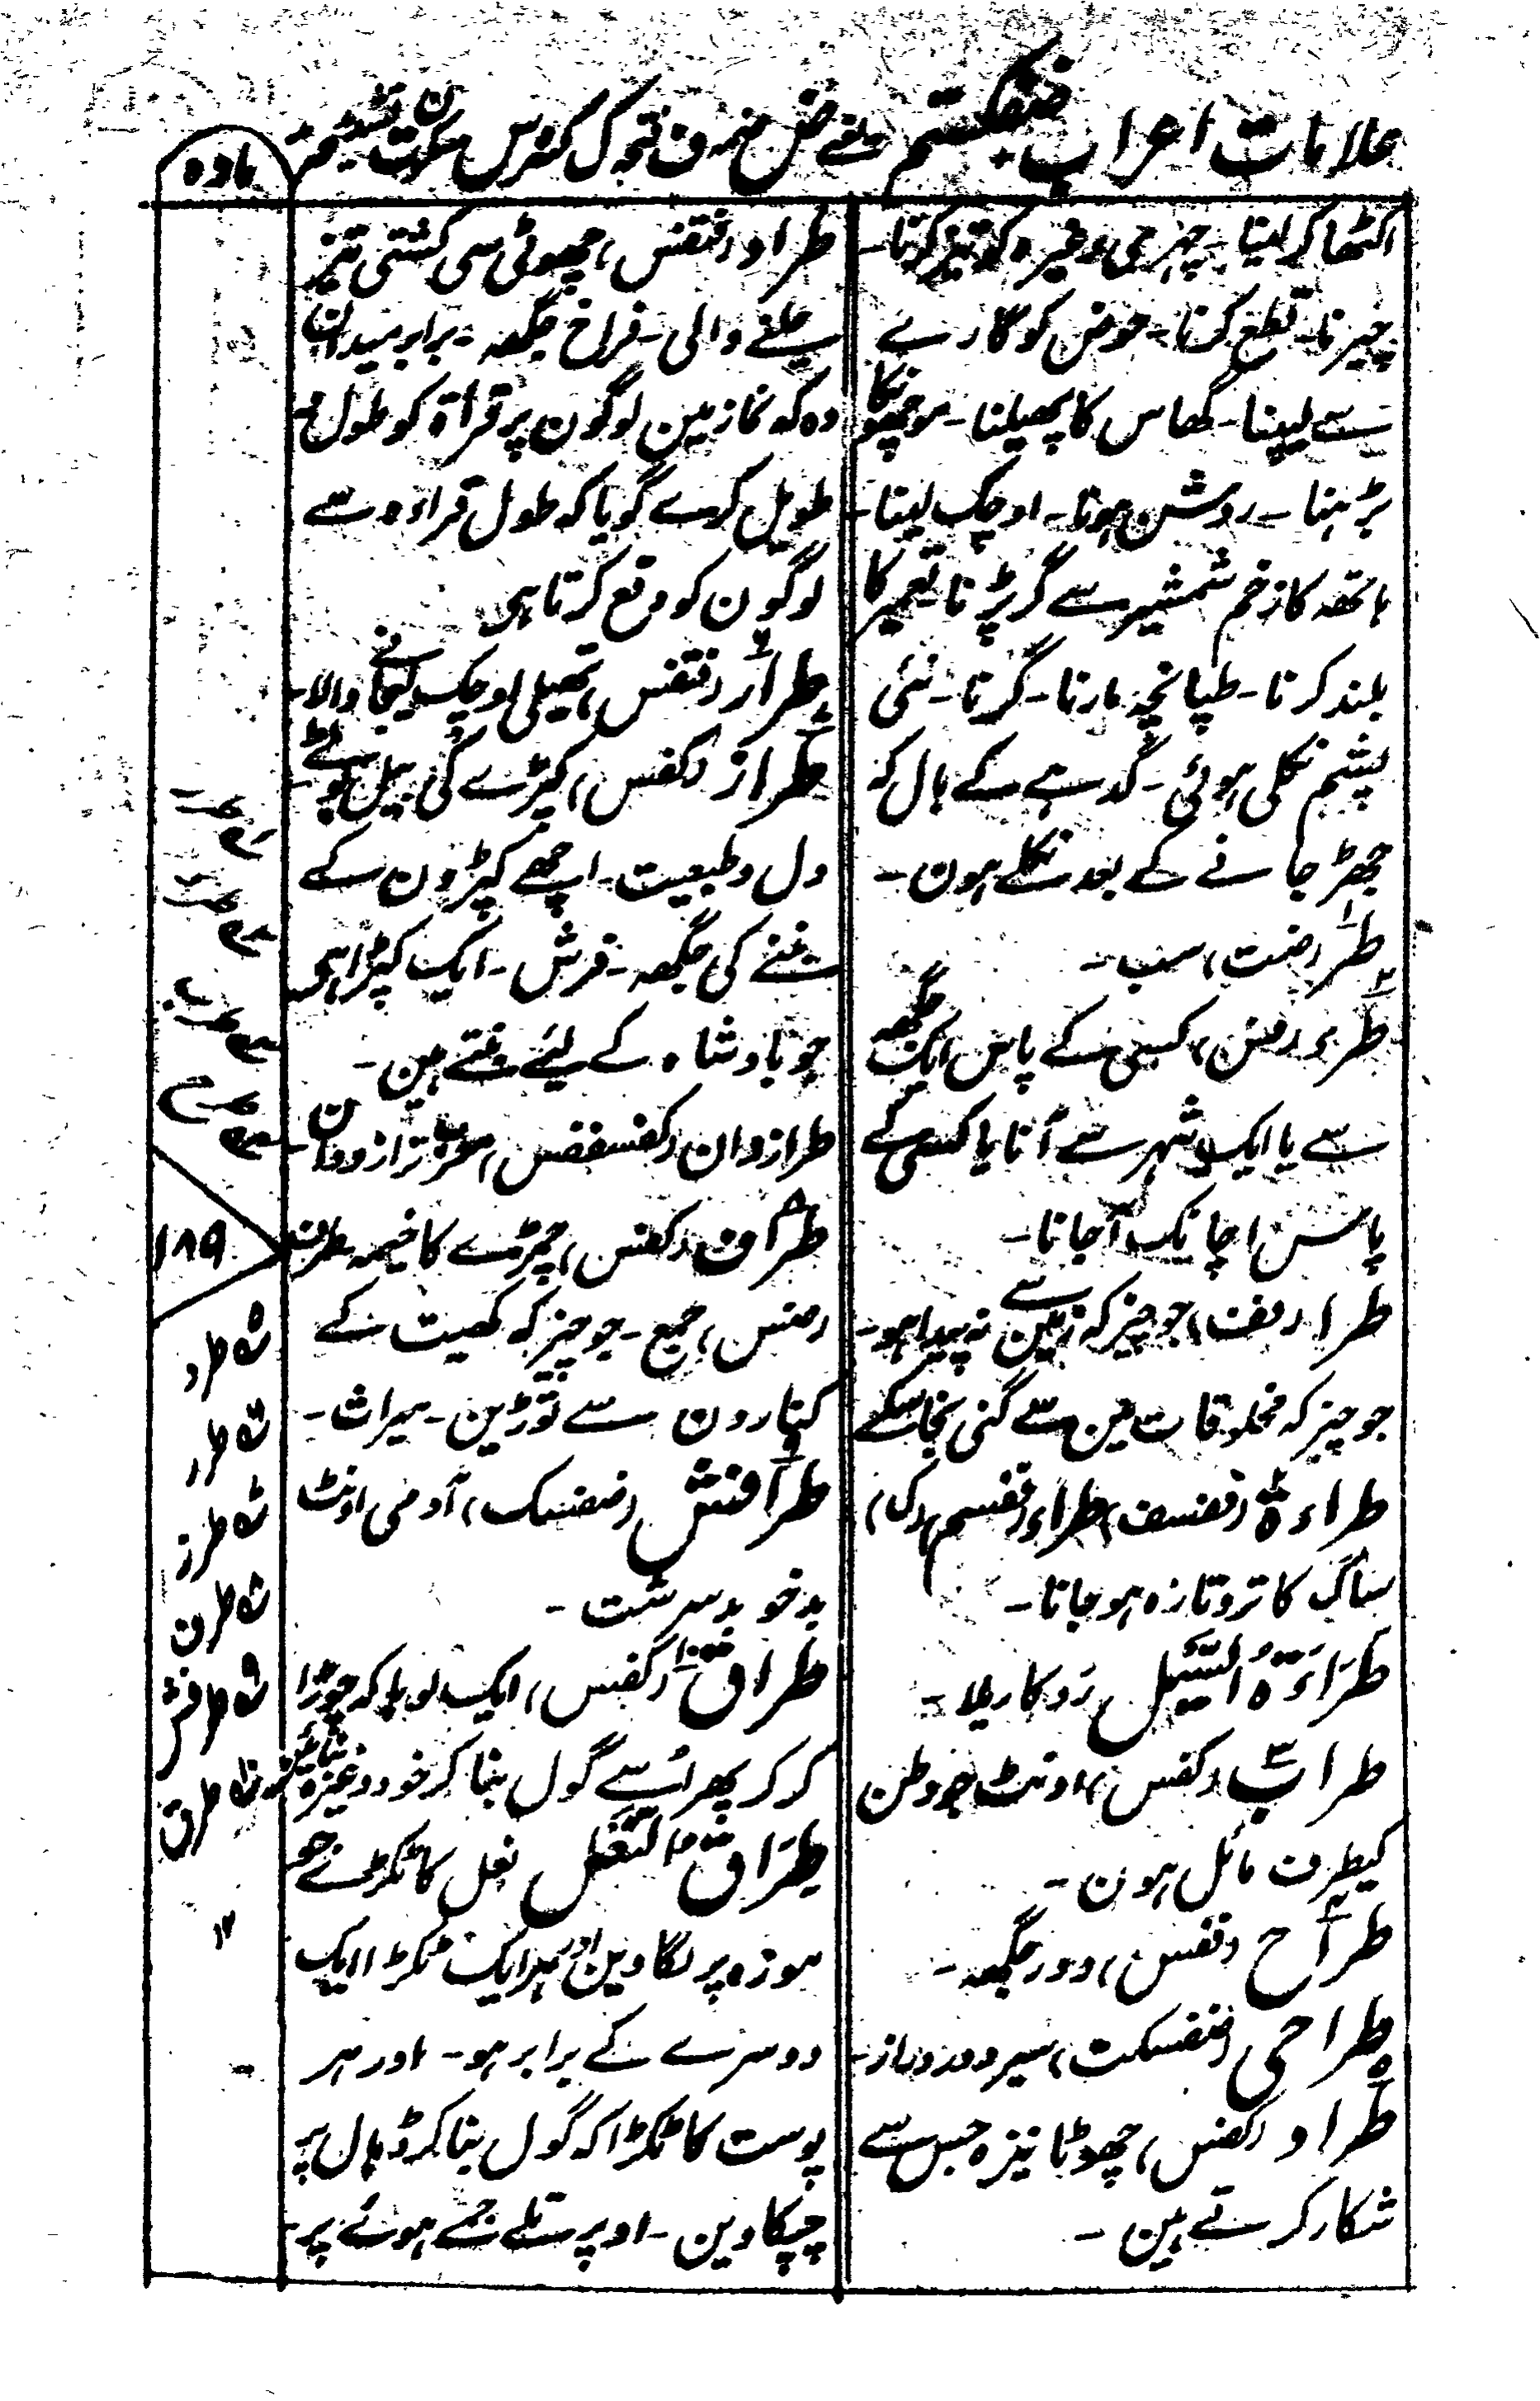 علامات اعراب ضفکستم یعنے ض ضمہ ف فتحہ ک کسرہ س سکون ت تشدید م
مادہ
اکٹھا کر لینا۔ چہری وغیرہ کو تیز کرنا۔
چیرنا۔ قطع کرنا۔ حوض کو گارے
سے لیپنا۔ گھاس کا پھیلنا۔ موچھونکا
بڑہنا۔ روشن ہونا۔ اوچک لینا۔
ہاتھہ کا زخم شمشیر سے گر پڑنا۔ تعمیر کا
بلند کرنا۔ طپانچہ مارنا۔ گرنا۔ نئی
پشم نکلی ہوئی۔ گدہے کے بال کہ
جھڑ جانے کے بعد نکلے ہون۔
طر (ضت) سب۔
طرء (فس) کسی کے پاس ایک جگھہ
سے یا ایک شہر سے آنا یا کسی کے
پاس اچانک آجانا۔
طرا (فت) جو چیز کہ زمین سے نہ پیدا ہو۔
جو چیز کہ مخلوقات مین سے گنی نجاسکے
طراءۃ (فتسف) طراء (فتسم) (ک)
ساگ کا تروتازہ ہو جانا۔
طَرَاءَۃُ السَّیْل رَو کا ریلا۔
طراب (کفس) اونٹ جو وطن
کیطرف مائل ہون۔
طراح (فس) دور جگھہ۔
طراحی (ضفسکت) سیر دور دراز۔
طراد (کفس) چھوٹا نیزہ جس سے
شکار کرتے ہین۔
طراد (فتفس) چھوٹی سی کشتی تیز
چلنے والی۔ فراخ جگھہ۔ برابر میدان
وہ کہ نماز مین لوگون پر قراۃ کو طول
طویل کرے گویا کہ طول قراءہ سے
لوگون کو دفع کرتا ہی
طرار (فتفس) تھیلی اوچک لیجانے والا۔
طراز (کفس) کپڑے کی بیل بوٹے۔
دل و طبیعت۔ اچھے کپڑون کے
بننے کی جگھہ۔ فرش۔ ایک کپڑا ہی
جو بادشاہ کے لیئے بنتے ہین۔
طرازدان (کفسففس) معرب ترازودان۔
طراف (کفس) چمڑے کا خیمہ طرف
(ضس) جمع۔ جو چیز کہ کھیت کے
کنارون سے توڑین۔ میراث۔
طرافش (ضفسک) آدمی اونٹ
بدخو بدسرشت۔
طراق (کفس) ایک لوہا کہ چوڑا
کر کر پھر اُسے گول بنا کر خود وغیرہ بنائین
طِرَاق النَّعْل نعل کا ٹکڑے جو
موزہ پر لگاوین اور ہر ایک ٹکڑا ایک
دوسرے کے برابر ہو۔ اور ہر
پوست کا ٹکڑا کہ گول بنا کر ڈہال پر
چپکاوین۔ اوپر تلے جمے ہوئے پر۔
۱۸۹
طرد
طرر
طرز
طرف
طرفش
طرق